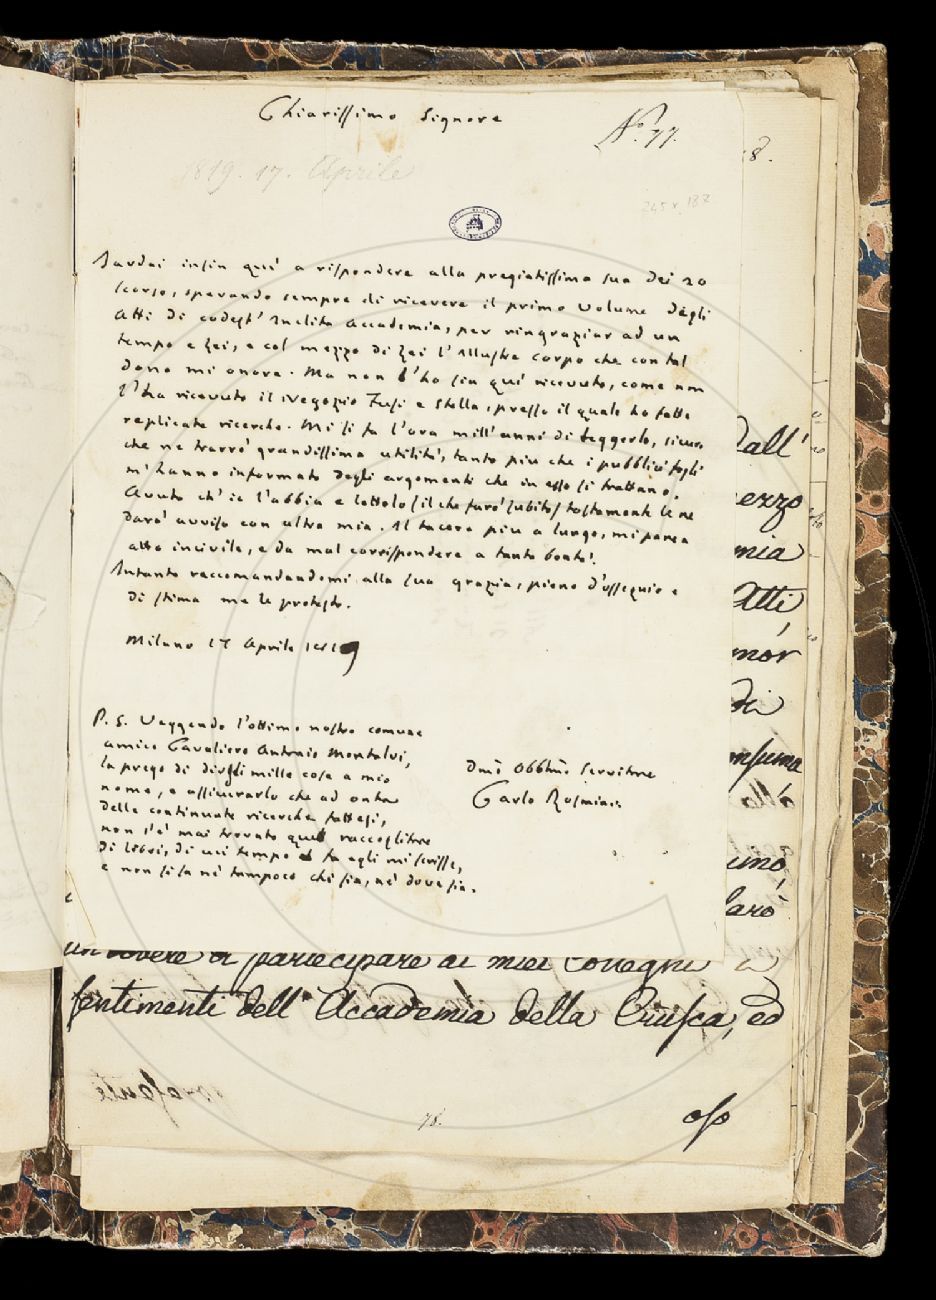 Chiarissimo Signore
N.° 77.
8.
1819. 17. Aprile
245 x 187
Tardai infin quì a rispondere alla pregiatissima sua dei 20
scorso, sperando sempre di ricevere il primo volume degli
Atti di codest' Inclita Accademia, per ringraziar ad un
tempo e Lei, e col mezzo di Lei l'Illustre corpo che con tal
dono mi onora. Ma non l'ho fin quì ricevuto, come non
l'ha ricevuto il Negozio Fusi e Stella, presso il quale ho fatte
replicate ricerche. Mi si fa l'ora mill'anni di leggerlo, sicuro
che ne trarrò grandissima utilità, tanto piu che i pubblici fogli
m'hanno informato degli argomenti che in esso si trattano.
Avuto ch' io l'abbia e lettolo (il che farò subito) tostamente le ne
darò avviso con altra mia. Il tacere piu a lungo, mi parea
atto incivile, e da mal corrispondere a tanta bontà.
Intanto raccomandandomi alla sua grazia, pieno d'ossequio e
di stima me le protesto.
Milano 17 Aprile 1819
P. S. Veggendo l'ottimo nostro comune
amico Cavaliere Antonio Montalvi,
la prego di dirgli mille cose a mio
nome, e assicurarlo che ad onta
delle continuate ricerche fattesi,
non s'è mai trovato quel raccoglitore
di libri, di cui tempo fa egli mi scrisse,
e non si sa nè tampoco chi sia, nè dove sia.
Dmo Obblmo Servitore
Carlo Rosmini
dall'
mezzo
mia
Atti
di
uno,
farò
un dovere di partecipare ai miei Colleghi i
sentimenti dell'Accademia della Crusca, ed
78.